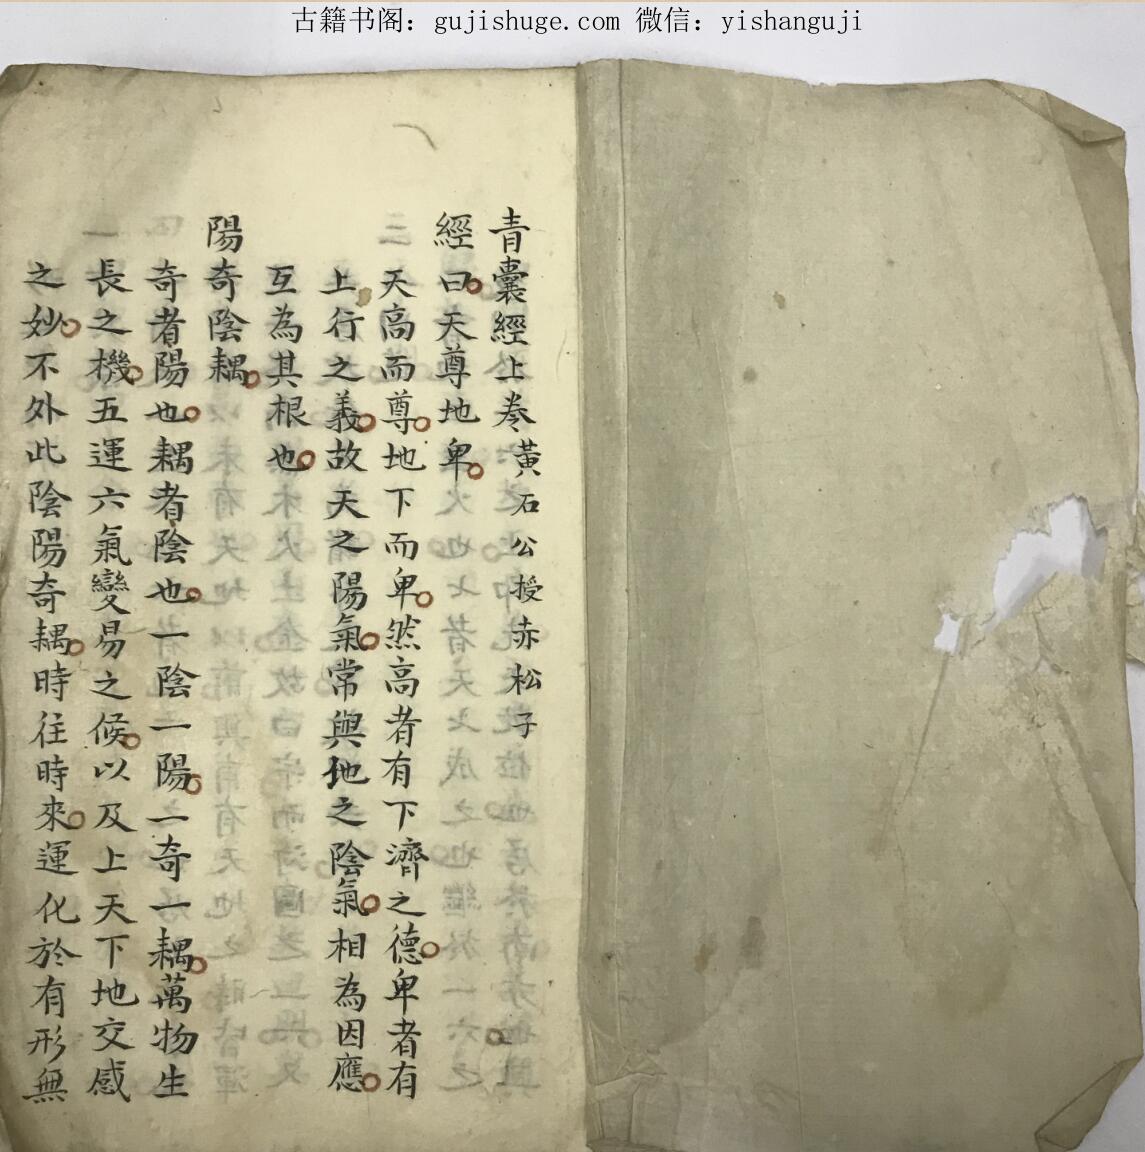 古籍书阁：gujishuge.com 微信：yishanguji
青囊經上卷黃石公授赤松子
經曰天尊地卑
天高而尊地下而卑然高者有下濟之德卑者有
上行之義故天之陽氣常與地之陰氣相為因應
互為其根也
陽奇陰耦
奇者陽也耦者陰也一陰一陽一奇一耦萬物生
長之機五運六氣變易之候以及上天下地交感
之妙不外此陰陽奇耦時往時來運化於有形無